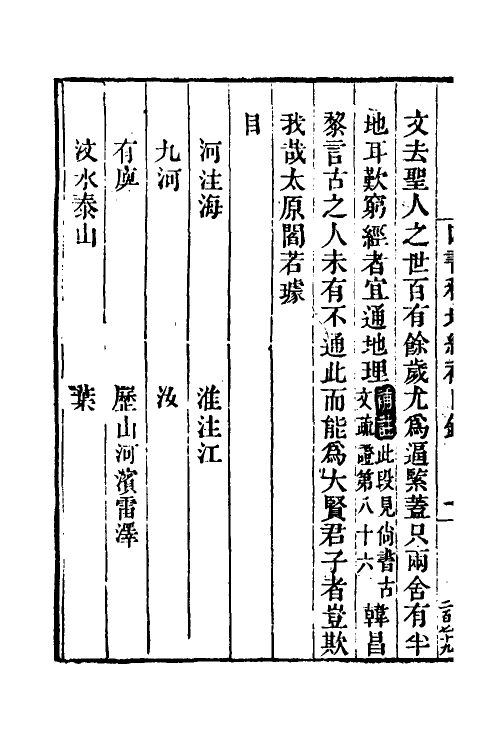 文去聖人之世百有餘歲尤爲逼緊蓋只兩舍有半
地耳歎窮經者宜通地理補註此段見尚書古文疏證第八十六韓昌
黎言古之人未有不通此而能爲大賢君子者豈欺
我哉太原閻若璩
目
河注海　淮注江
九河　汝
有庳　歷山河濱雷澤
汶水泰山　葉